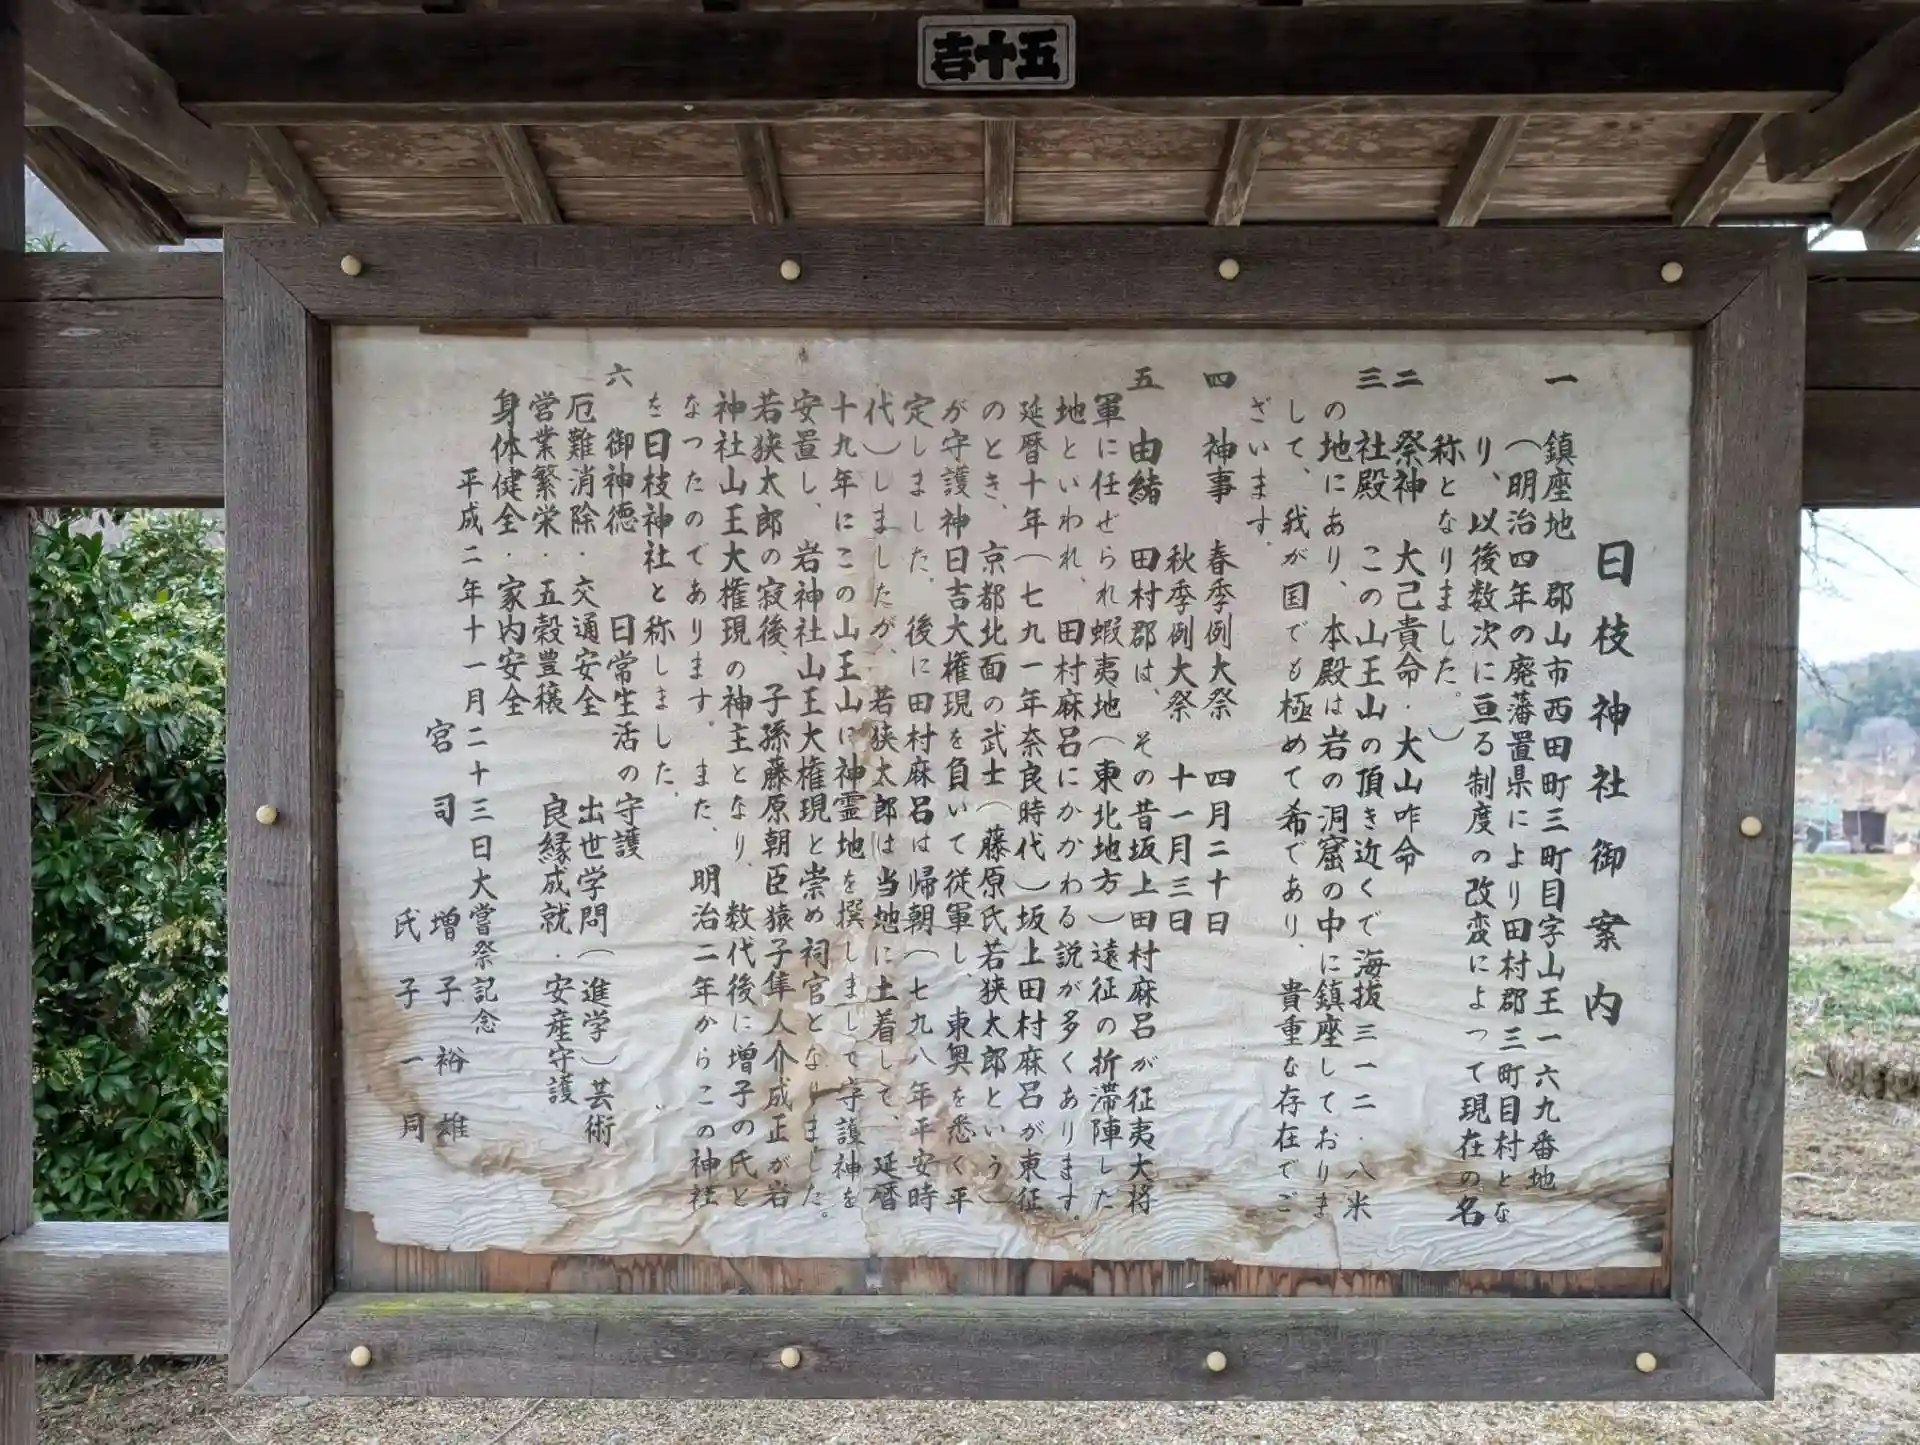 吉十五
日枝神社御案内
一 鎮座地 郡山市西田町三町目字山王一六九番地
(明治四年の廃藩置県により田村郡三町目村とな
り、以後数次に亘る制度の改変によって現在の名
称となりました。)
二 祭神 大己貴命・大山咋命
三 社殿 この山王山の頂き近くで海抜三一二・八米
の地にあり、本殿は岩の洞窟の中に鎮座しておりま
して、我が国でも極めて希であり、貴重な存在でご
ざいます。
四 神事 春季例大祭 四月二十日
秋季例大祭 十一月三日
五 由緒 田村郡は、その昔坂上田村麻呂が征夷大将
軍に任ぜられ蝦夷地(東北地方)遠征の折滞陣した
地といわれ、田村麻呂にかかわる説が多くあります。
延暦十年(七九一年奈良時代)坂上田村麻呂が東征
のとき、京都北面の武士(藤原氏若狭太郎という)
が守護神日吉大権現を負いて従軍し、東奥を悉く平
定しました。後に田村麻呂は帰朝(七九八年平安時
代)しましたが、若狭太郎は当地に土着して、延暦
十九年にこの山王山に神霊地を撰しまして守護神を
安置し、岩神社山王大権現と崇め祠官となりました。
若狭太郎の寂後、子孫藤原朝臣猿子隼人介成正が岩
神社山王大権現の神主となり、数代後に増子の氏と
なったのであります。また、明治二年からこの神社
を日枝神社と称しました。
六 御神徳 日常生活の守護
厄難消除・交通安全 出世学問(進学)芸術
営業繁栄・五穀豊穣 良縁成就・安産守護
身体健全・家内安全
平成二年十一月二十三日大嘗祭記念
宮司 増子裕雄
氏子一同